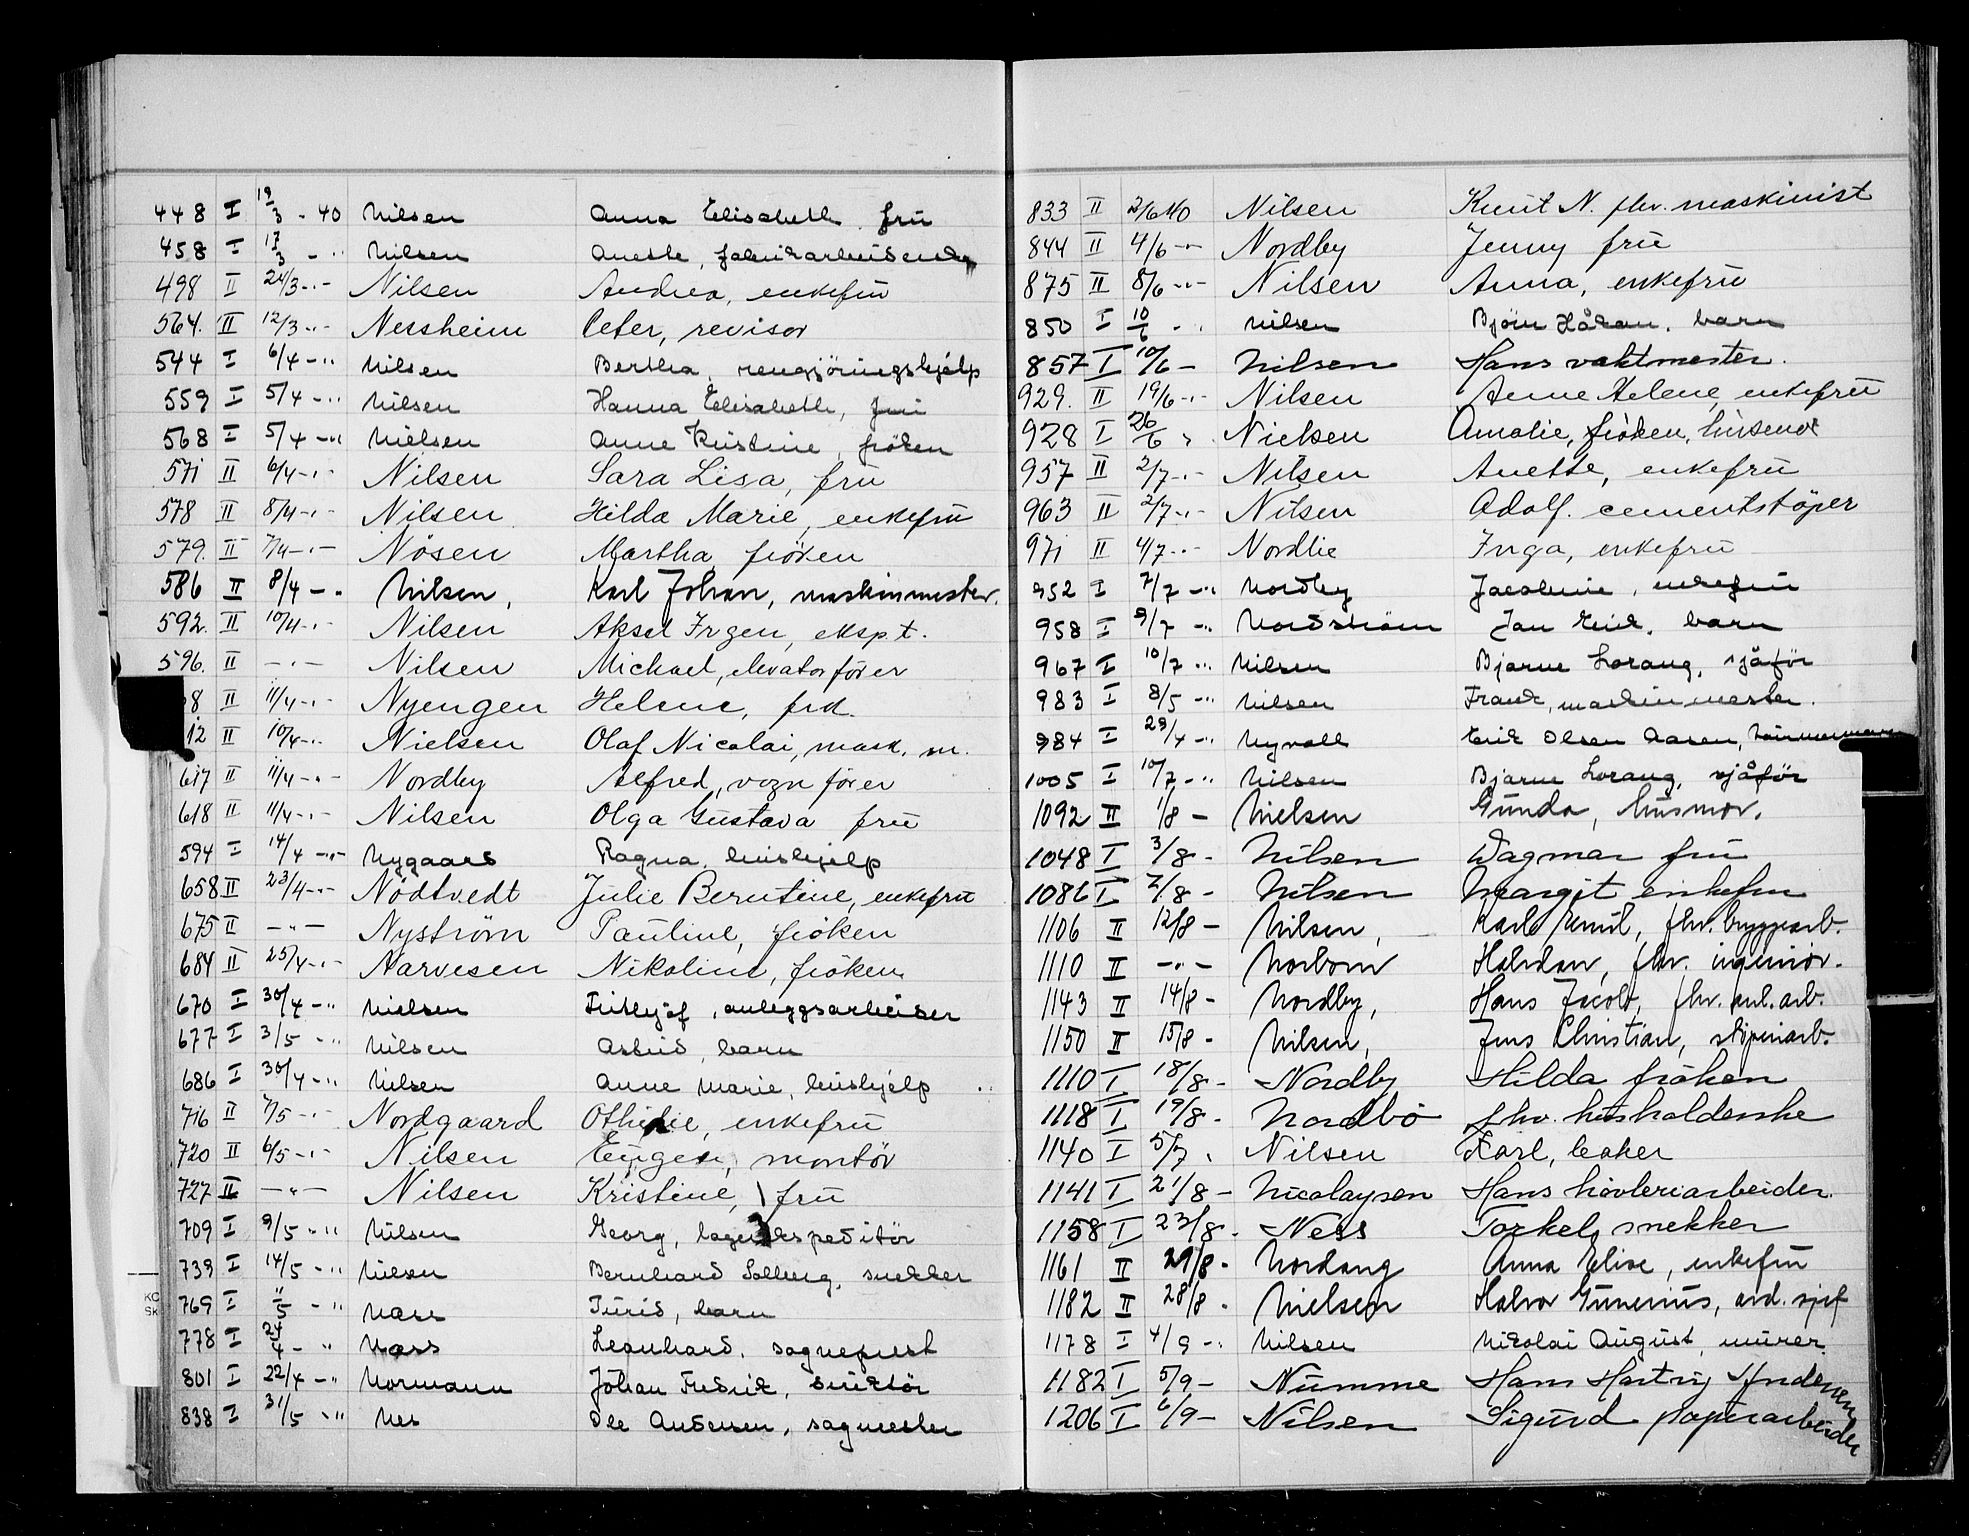 448 I 19/3 - 40 Nilsen Anna Elisabeth fru
458 I 17/3 - " Nilsen Anethe, fabrikarbeiderske
498 II 24/3 -"- Nilsen Andrea, enkefru
564. II 12/3 -"- Nessheim Peter, revisor
544 I 6/4 - " Nilsen Bertha, rengjöringshjelp
559 I 5/4 - " Nilsen Hanna Elisabeth, fru
568 I 5/4 - " Nielsen Anne Kristine, fröken
571 II 6/4 -"- Nilsen Sara Lisa, fru
578 II 8/4 -"- Nilsen Hilda Marie, enkefru
579. II 7/4 -"- Nösen Martha, fröken
586 II 8/4 - " Nilsen, Karl Johan, maskinmester.
592. II 10/4 -"- Nilsen Aksel Irgen, eksp.t.
596. II -"- Nilsen Michael, elevatorförer
8 II 11/4 -"- Nyengen Helene, frk.
12 II 10/4 -"- Nielsen Olaf Nicolai, mask. m.
617 II 11/4 -"- Nordby Alfred, vognförer
618 II 11/4 -"- Nilsen Olga Gustava fru
594 I 14/4 -"- Nygaard Ragna, hushjelp
658 II 23/4 -"- Nödtvedt Julie Berntine, enkefru
675 II -"- Nyström Pauline, fröken
684 II 25/4 -"- Narvesen Nikoline, fröken
670 I 30/4 - " Nielsen Frithjof, anleggsarbeider
677 I 3/5 - " Nilsen Astrid, barn
686 I 30/4 - " Nilsen Anne Marie, hushjelp
716 II 7/5 -"- Nordgaard Othilie, enkefru
720 II 6/5 -"- Nilsen Eugen, montör
727 II -"- Nilsen Kristine, fru
709 I 9/5 - " Nilsen Georg, lagerekspeditör
739 I 14/5 - " Nilsen Bernhard Solberg, snekker
769 I 11/5 - " Næss Turid, barn
778 I 24/4 - " Næss Leonhard, sogneprest
801 I 22/4 - " Normann Johan Fredrik, direktör
838 I 31/5 - " Nes Ole Andersen, sagmester
833 II 2/6 40 Nilsen Knut N. fhv. maskinist
844 II 4/6 -"- Nordby Jenny fru
875 II 8/6 -"- Nilsen Anna, enkefru
850 I 10/6 - " Nilsen Björn Håkan, barn
857 I 10/6 - Nilsen Hans vaktmester.
929. II 19/6 -"- Nilsen Anne Helene, enkefru
928 I 26/6 " Nielsen Amalie, fröken,
957 II 2/7 -"- Nilsen Anette, enkefru
963 II 2/7 -"- Nilsen Adolf. cementstöper
971 II 4/7 -"- Nordlie Inga, enkefru
952 I 7/7 - " Nordby Jacobine, enkefru
958 I 9/7 - " Nordström Jan Erik, barn
967 I 10/7 - " Nilsen Bjarne Lorang, sjåför
983 I 8/5 - " Nilsen Frank, maskinmester.
984 I 29/4 - " Nyvoll Erik Olsen Aasen, tömmermann
1005 I 10/7 - " Nilsen Bjarne Lorang, sjåför
1092 II 1/8 - Nielsen Gunda, husmor.
1048 I 3/8 - Nilsen Dagmar fru
1086 I 7/8 - Nilsen Margit enkefru
1106 II 12/8 - Nilsen, Karl Emil, fhv. byggearb.
1110 II -"- Norbom Halvdan, fhv. ingeniör.
1143 II 14/8 - Nordby, Hans Jacob, fhv. anl. arb.
1150 II 15/8 - Nilsen, Jens Christian, stöperiarb.
1110 I 18/8 - Nordby Hilda fröken
1118 I 19/8 - Nordbö fhv. husholderske
1140 I 5/7 " Nilsen Karl, baker
1141 I 21/8 - Nicolaysen Hans hövleriarbeider.
1158 I 23/8 - Ness Torkel, snekker
1161 II 29/8 - Nordang Anna Elise, enkefru
1182 II 28/8 - Nielsen Halvor Gunerius, avd. sjef
1178 I 4/9 - " Nilsen Nikolai August, murer.
1182 I 5/9 - Numme Hans Hartvig
1206 I 6/9 - Nilsen Sigurd papirarbeider